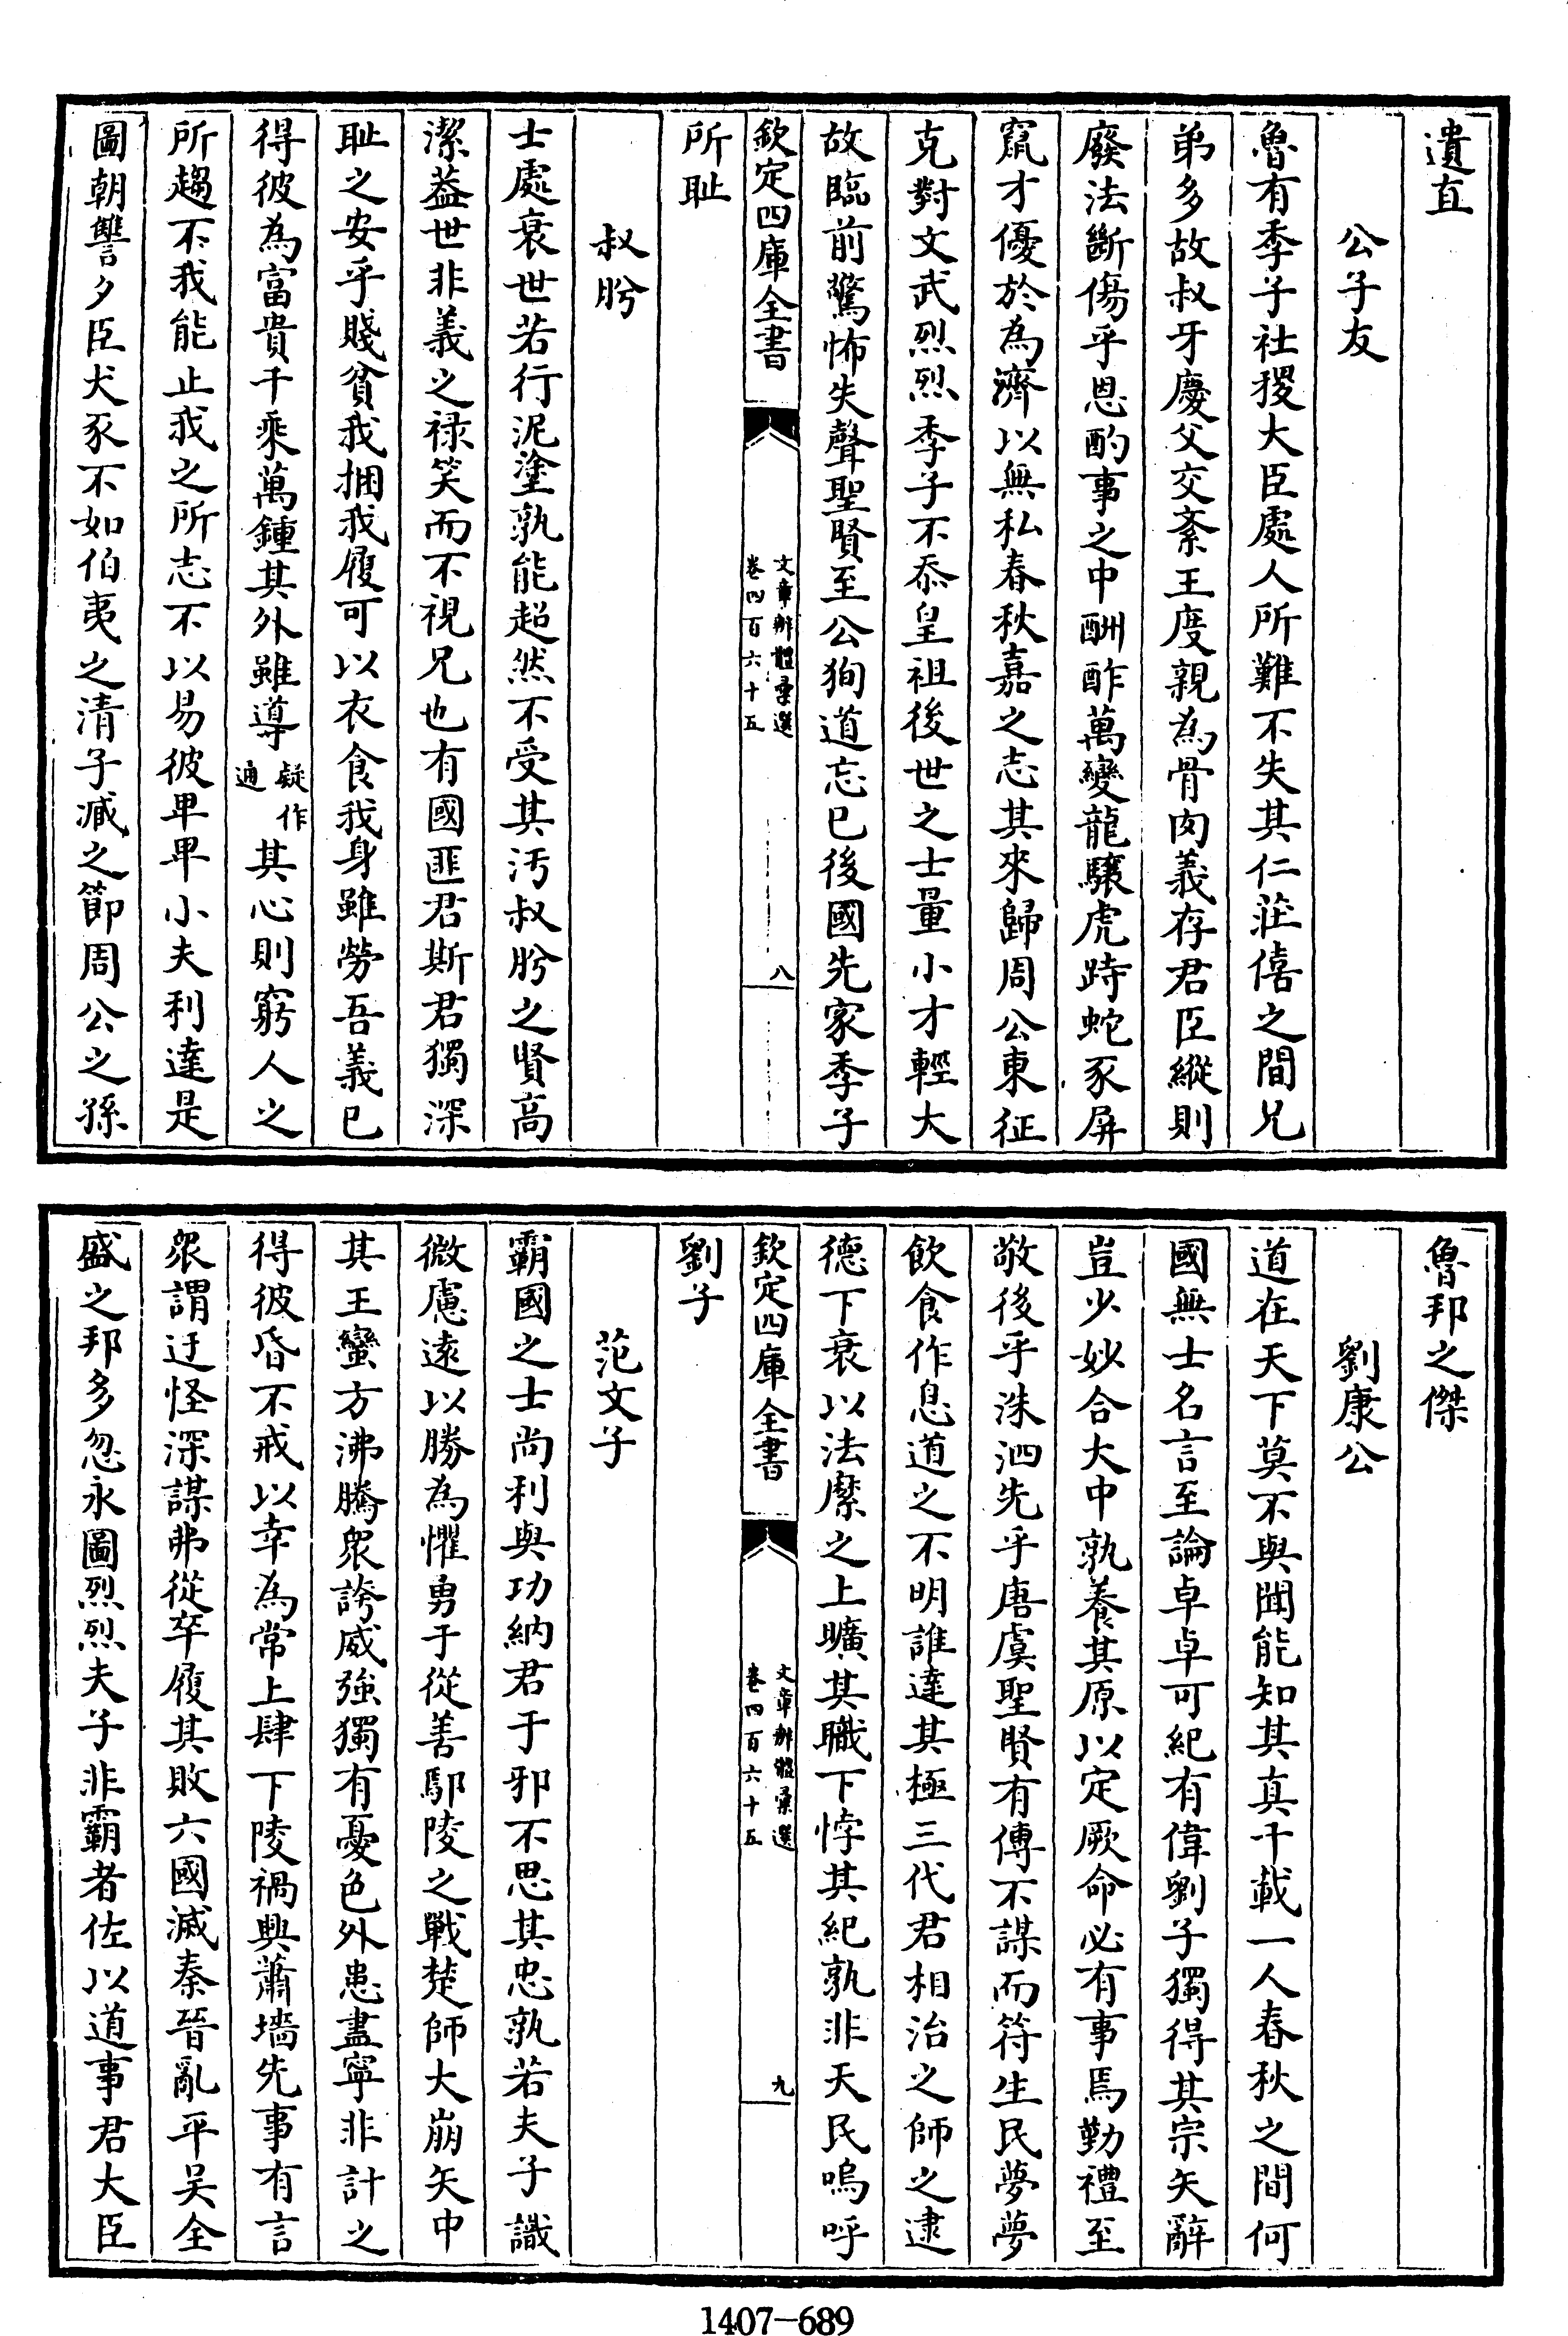 遺直
公子友
魯有季子社稷大臣處人所難不失其仁莊僖之間兄
弟多故叔牙慶父交紊王度親為骨肉義存君臣縱則
廢法斷傷乎恩酌事之中酬酢萬變龍驤虎跱蛇豕屏
竄才優於為濟以無私春秋嘉之志其來歸周公東征
克對文武烈烈季子不忝皇祖後世之士量小才輕大
故臨前驚怖失聲聖賢至公狥道忘已後國先家季子
欽定四庫全書
文章辨體彙選
卷四百六十五
八
所耻
叔肸
士處衰世若行泥塗孰能超然不受其汚叔肸之賢高
潔葢世非義之禄笑而不視兄也有國匪君斯君獨深
耻之安乎賤貧我捆我履可以衣食我身雖勞吾義已
得彼為富貴千乘萬鍾其外雖導疑作通其心則窮人之
所趨不我能止我之所志不以易彼卑卑小夫利達是
圖朝讐夕臣犬豕不如伯夷之清子臧之節周公之孫
魯邦之傑
劉康公
道在天下莫不與聞能知其真千載一人春秋之間何
國無士名言至論卓卓可紀有偉劉子獨得其宗矢辭
豈少妙合大中孰養其原以定厥命必有事焉勤禮至
敬後乎洙泗先乎唐虞聖賢有傳不謀而符生民夢夢
飲食作息道之不明誰達其極三代君相治之師之逮
德下衰以法縻之上曠其職下悖其紀孰非天民嗚呼
欽定四庫全書
文章辨體彙選
卷四百六十五
九
劉子
范文子
霸國之士尚利與功納君于邪不思其忠孰若夫子識
微慮遠以勝為懼勇于從善鄢陵之戰楚師大崩矢中
其王蠻方沸騰衆誇威強獨有憂色外患盡寧非計之
得彼昏不戒以幸為常上肆下陵禍興蕭墻先事有言
衆謂迂怪深謀弗從卒履其敗六國滅秦晉亂平吳全
盛之邦多忽永圖烈烈夫子非霸者佐以道事君大臣
1407-689